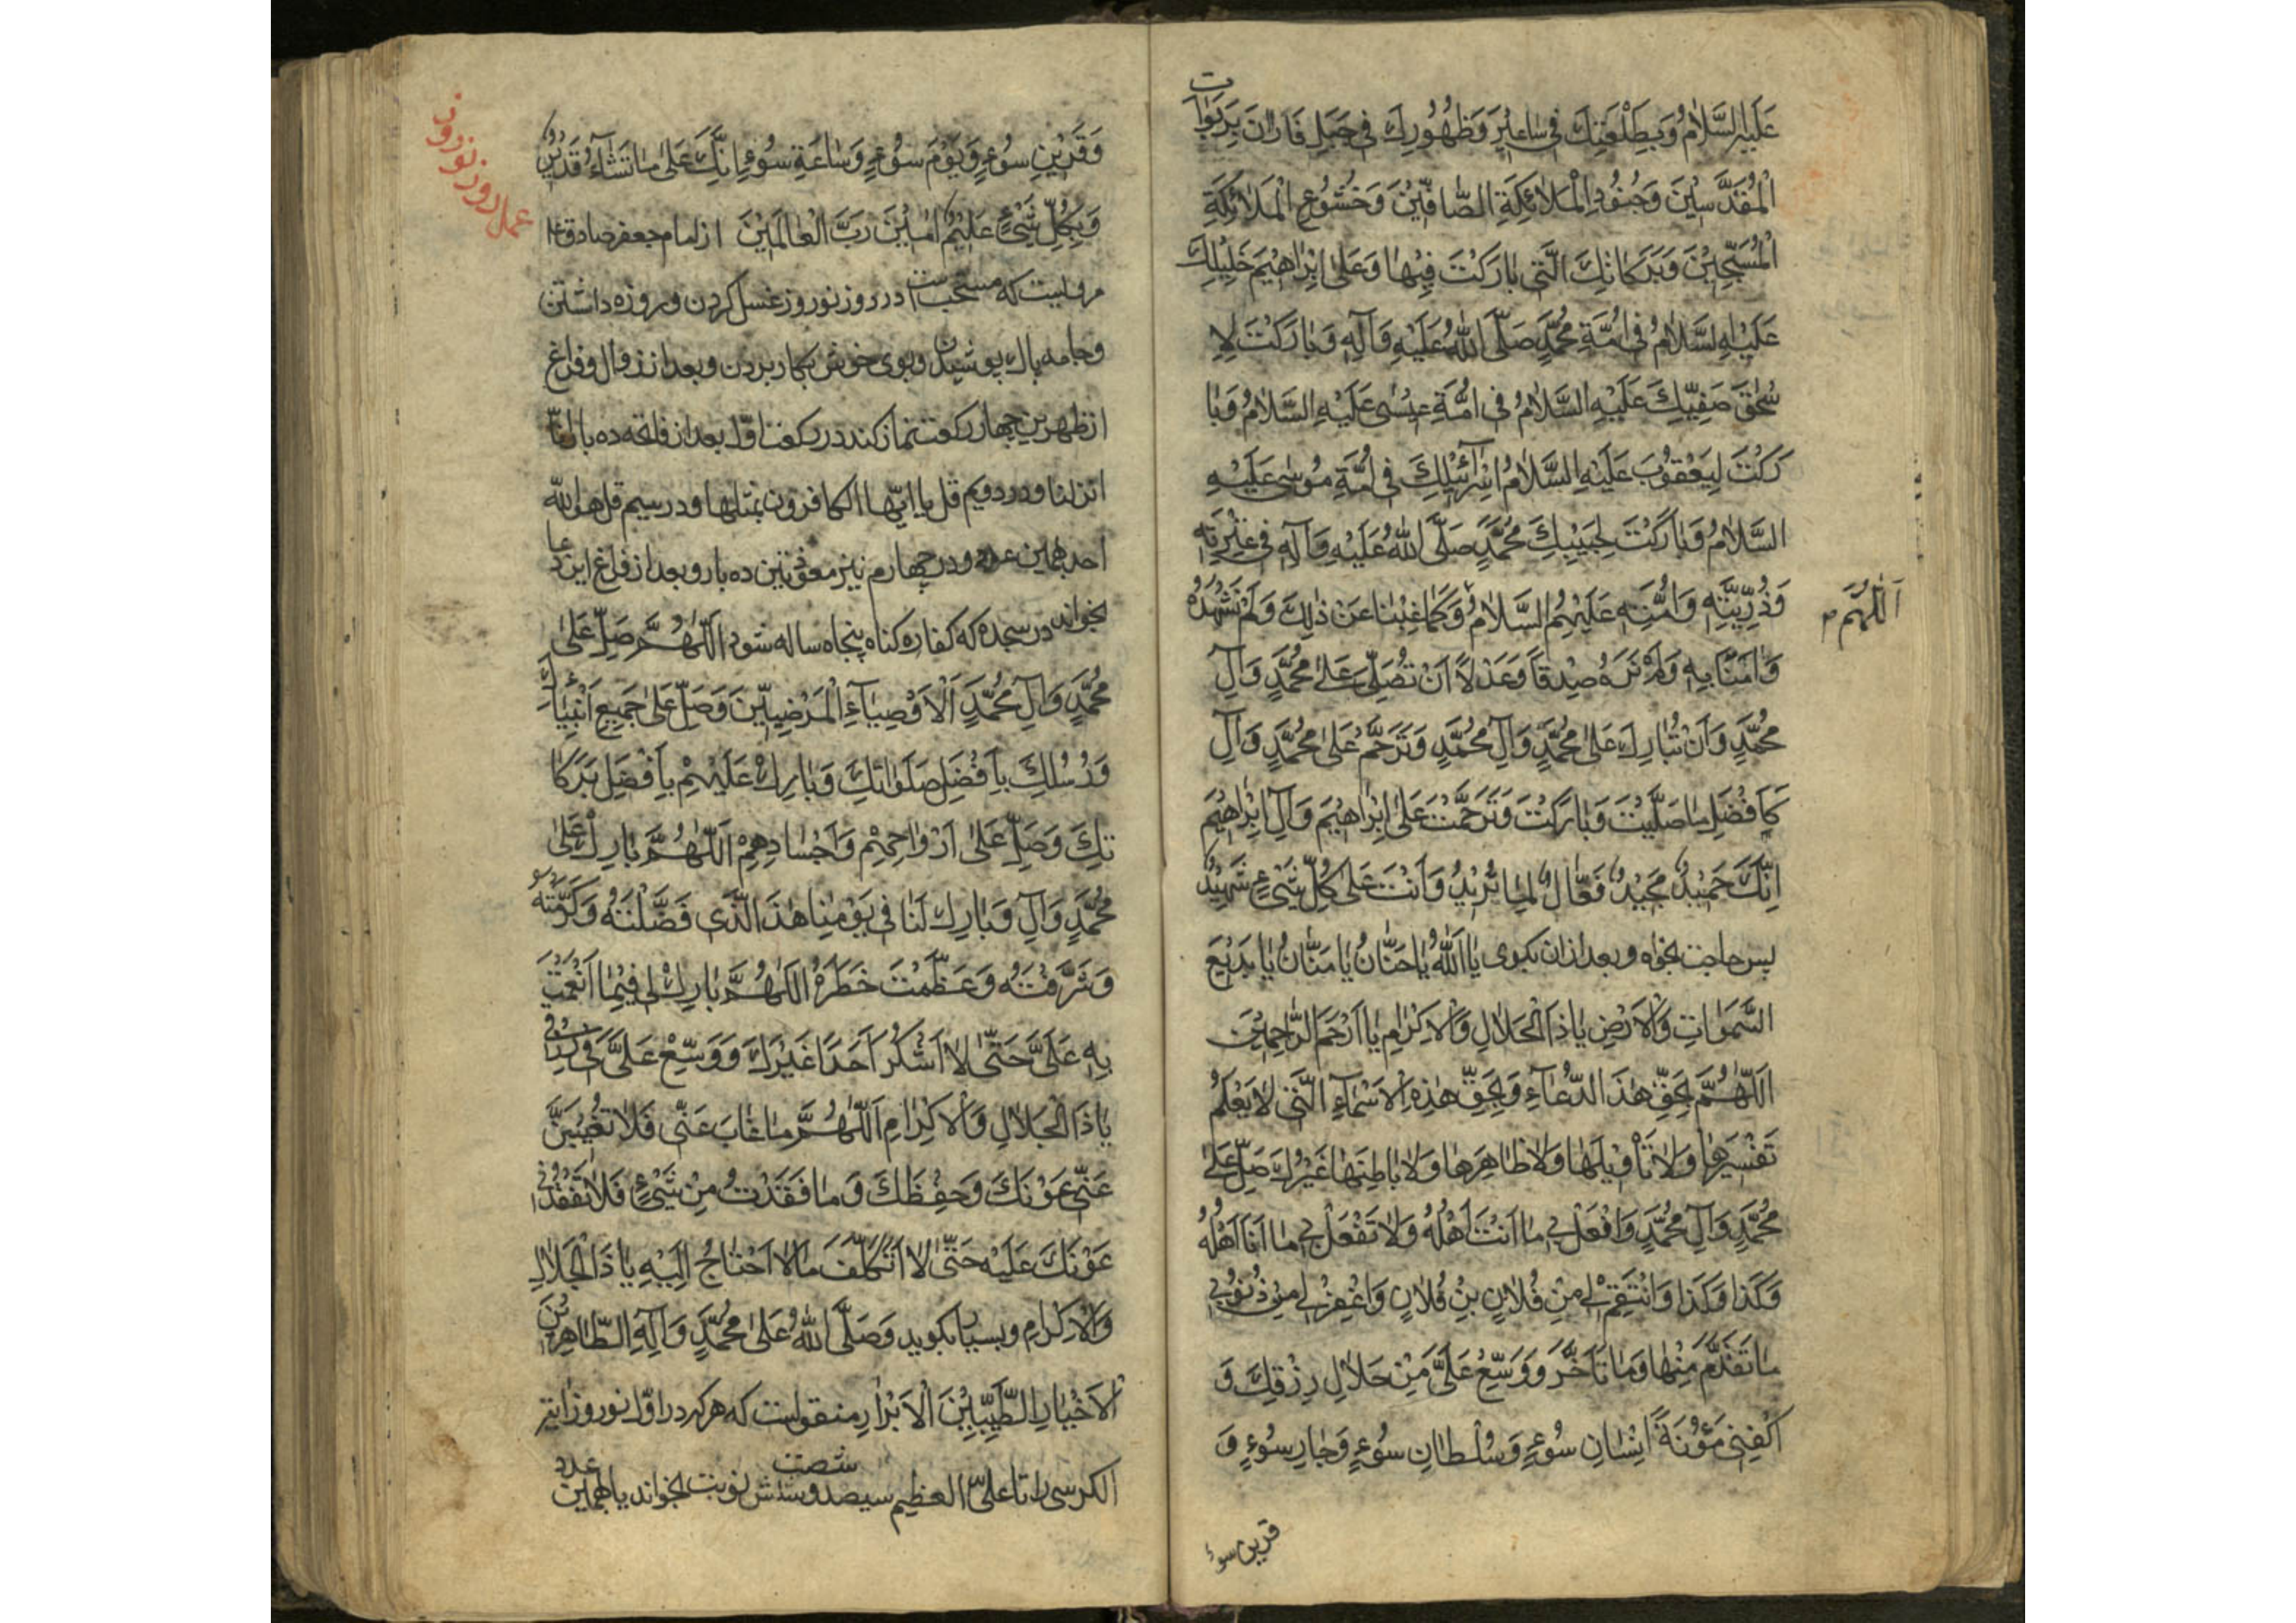 عَلَيْهِ السَّلَامُ وَبِطَلْعَتِكَ فِي سَاعِيرَ وَظُهُورِكَ فِي جَبَلِ فَارَانَ بِرَبَوَاتِ
الْمُقَدَّسِينَ وَجُنُودِ الْمَلَائِكَةِ الصَّافِّينَ وَخُشُوعِ الْمَلَائِكَةِ
الْمُسَبِّحِينَ وَبَرَكَاتِكَ الَّتِي بَارَكْتَ فِيهَا وَعَلَى إِبْرَاهِيمَ خَلِيلِكَ
عَلَيْهِ السَّلَامُ فِي أُمَّةِ مُحَمَّدٍ صَلَّى اللّٰهُ عَلَيْهِ وَآلِهِ وَبَارَكْتَ لِاِ
سْحٰقَ صَفِيِّكَ عَلَيْهِ السَّلَامُ فِي أُمَّةِ عِيسٰى عَلَيْهِ السَّلَامُ وَبَا
رَكْتَ لِيَعْقُوبَ عَلَيْهِ السَّلَامُ اِسْرَآئِيلِكَ فِي أُمَّةِ مُوسٰى عَلَيْهِ
السَّلَامُ وَبَارَكْتَ لِحَبِيبِكَ مُحَمَّدٍ صَلَّى اللّٰهُ عَلَيْهِ وَآلِهِ فِي عِتْرَتِهِ
وَذُرِّيَّتِهِ وَأُمَّتِهِ عَلَيْهِمُ السَّلَامُ وَكَمَا غِبْنَا عَنْ ذٰلِكَ وَلَمْ نَشْهَدْهُ
اَللّٰهُمَّ م
وَاٰمَنَّا بِهِ وَلَمْ نَرَهُ صِدْقًا وَعَدْلًا أَنْ تُصَلِّيَ عَلٰى مُحَمَّدٍ وَآلِ
مُحَمَّدٍ وَأَنْ تُبَارِكَ عَلٰى مُحَمَّدٍ وَآلِ مُحَمَّدٍ وَتَرَحَّمَ عَلٰى مُحَمَّدٍ وَآلِ
كَاَفْضَلِ مَا صَلَّيْتَ وَبَارَكْتَ وَتَرَحَّمْتَ عَلٰى إِبْرَاهِيمَ وَآلِ إِبْرَاهِيمَ
اِنَّكَ حَمِيدٌ مَجِيدٌ فَعَّالٌ لِمَا تُرِيدُ وَاَنْتَ عَلٰى كُلِّ شَيْءٍ شَهِيدٌ
پس حاجت بخواه و بعد از ان بكوى يَا اَللّٰهُ يَا حَنَّانُ يَا مَنَّانُ يَا بَدِيعَ
السَّمٰوَاتِ وَالْاَرْضِ يَا ذَا الْجَلَالِ وَالْاِكْرَامِ يَا اَرْحَمَ الرَّاحِمِينَ
اَللّٰهُمَّ بِحَقِّ هٰذَا الدُّعَآءِ وَبِحَقِّ هٰذِهِ الْاَسْمَآءِ الَّتِي لَا يَعْلَمُ
تَفْسِيرَهَا وَلَا تَأْوِيلَهَا وَلَا ظَاهِرَهَا وَلَا بَاطِنَهَا غَيْرُكَ صَلِّ عَلٰى
مُحَمَّدٍ وَآلِ مُحَمَّدٍ وَافْعَلْ بِي مَا اَنْتَ اَهْلُهُ وَلَا تَفْعَلْ بِي مَا اَنَا اَهْلُهُ
وَكَذَا وَكَذَا وَانْتَقِمْ لِي مِنْ فُلَانِ بْنِ فُلَانٍ وَاغْفِرْ لِي مِنْ ذُنُوبِي
مَا تَقَدَّمَ مِنْهَا وَمَا تَاَخَّرَ وَوَسِّعْ عَلَيَّ مِنْ حَلَالِ رِزْقِكَ وَ
اكْفِنِي مَؤُنَةَ اِنْسَانِ سُوءٍ وَسُلْطَانِ سُوءٍ وَجَارِ سُوءٍ وَ
قرین سوء
عمل روز نوروز
وَقَرِينِ سُوءٍ وَيَوْمَ سُوءٍ وَسَاعَةِ سُوءٍ اِنَّكَ عَلٰى مَا تَشَآءُ قَدِيرٌ
وَبِكُلِّ شَيْءٍ عَلِيمٌ اٰمِينَ رَبَّ الْعَالَمِينَ از امام جعفر صادق ع
مرویست که مستحب است در روز نوروز غسل کردن و روزه داشتن
و جامه پاك پوشیدن و بوی خوش بكار بردن و بعد از زوال و فراغ
از ظهرین چهار رکعت نماز کند در رکعت اوّل بعد از فاتحه ده بار انّا
انزلنا و در دویم قل یا ایّها الکافرون بمثلها و در سیم قل هو اللّه
احد بهمین عدد و در چهارم نیز معوذتین ده بار و بعد از فراغ این دعا
بخواند در سجده که کفاره کناه پنجاه ساله شود اَللّٰهُمَّ صَلِّ عَلٰى
مُحَمَّدٍ وَآلِ مُحَمَّدٍ اَلْاَوْصِيَآءِ الْمَرْضِيِّينَ وَصَلِّ عَلٰى جَمِيعِ اَنْبِيَآئِكَ
وَرُسُلِكَ بِاَفْضَلِ صَلَوَاتِكَ وَبَارِكْ عَلَيْهِمْ بِاَفْضَلِ بَرَكَا
تِكَ وَصَلِّ عَلٰى اَرْوَاحِهِمْ وَاَجْسَادِهِمْ اَللّٰهُمَّ بَارِكْ عَلٰى
مُحَمَّدٍ وَآلِ وَبَارِكْ لَنَا فِي يَوْمِنَا هٰذَا الَّذِي فَضَّلْتَهُ وَكَرَّمْتَهُ
وَشَرَّفْتَهُ وَعَظَّمْتَ خَطَرَهُ اَللّٰهُمَّ بَارِكْ لِي فِيمَا اَنْعَمْتَ
بِهِ عَلَيَّ حَتّٰى لَا اَشْكُرَ اَحَدًا غَيْرَكَ وَوَسِّعْ عَلَيَّ فِي رِزْقِي
يَا ذَا الْجَلَالِ وَالْاِكْرَامِ اَللّٰهُمَّ مَا غَابَ عَنِّي فَلَا تُغَيِّبَنَّ
عَنِّي عَوْنَكَ وَحِفْظَكَ وَمَا فَقَدْتُ مِنْ شَيْءٍ فَلَا تُفْقِدْنِي
عَوْنَكَ عَلَيْهِ حَتّٰى لَا اَتَكَلَّفَ مَا لَا اَحْتَاجُ اِلَيْهِ يَا ذَا الْجَلَالِ
وَالْاِكْرَامِ و بسیار بکوید وَصَلَّى اللّٰهُ عَلٰى مُحَمَّدٍ وَآلِهِ الطَّاهِرِينَ
الْاَخْيَارِ الطَّيِّبِينَ الْاَبْرَارِ منقولست که هر که در اوّل نوروز آیة
الکرسی را تا علیّ العظیم سیصد و شصت و شش نوبت بخواند یا بهمین عدد